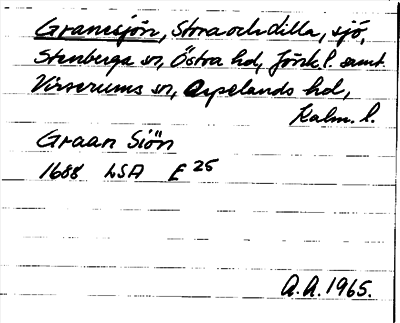 Gransjön, Stora och Lilla, sjö,
Stenberga sn, Östra hd, Jönk. l. samt
Virserums sn, Aspelands hd,
Kalm. l.
Graan Siön
1688 LSA E 25
A.A. 1965.